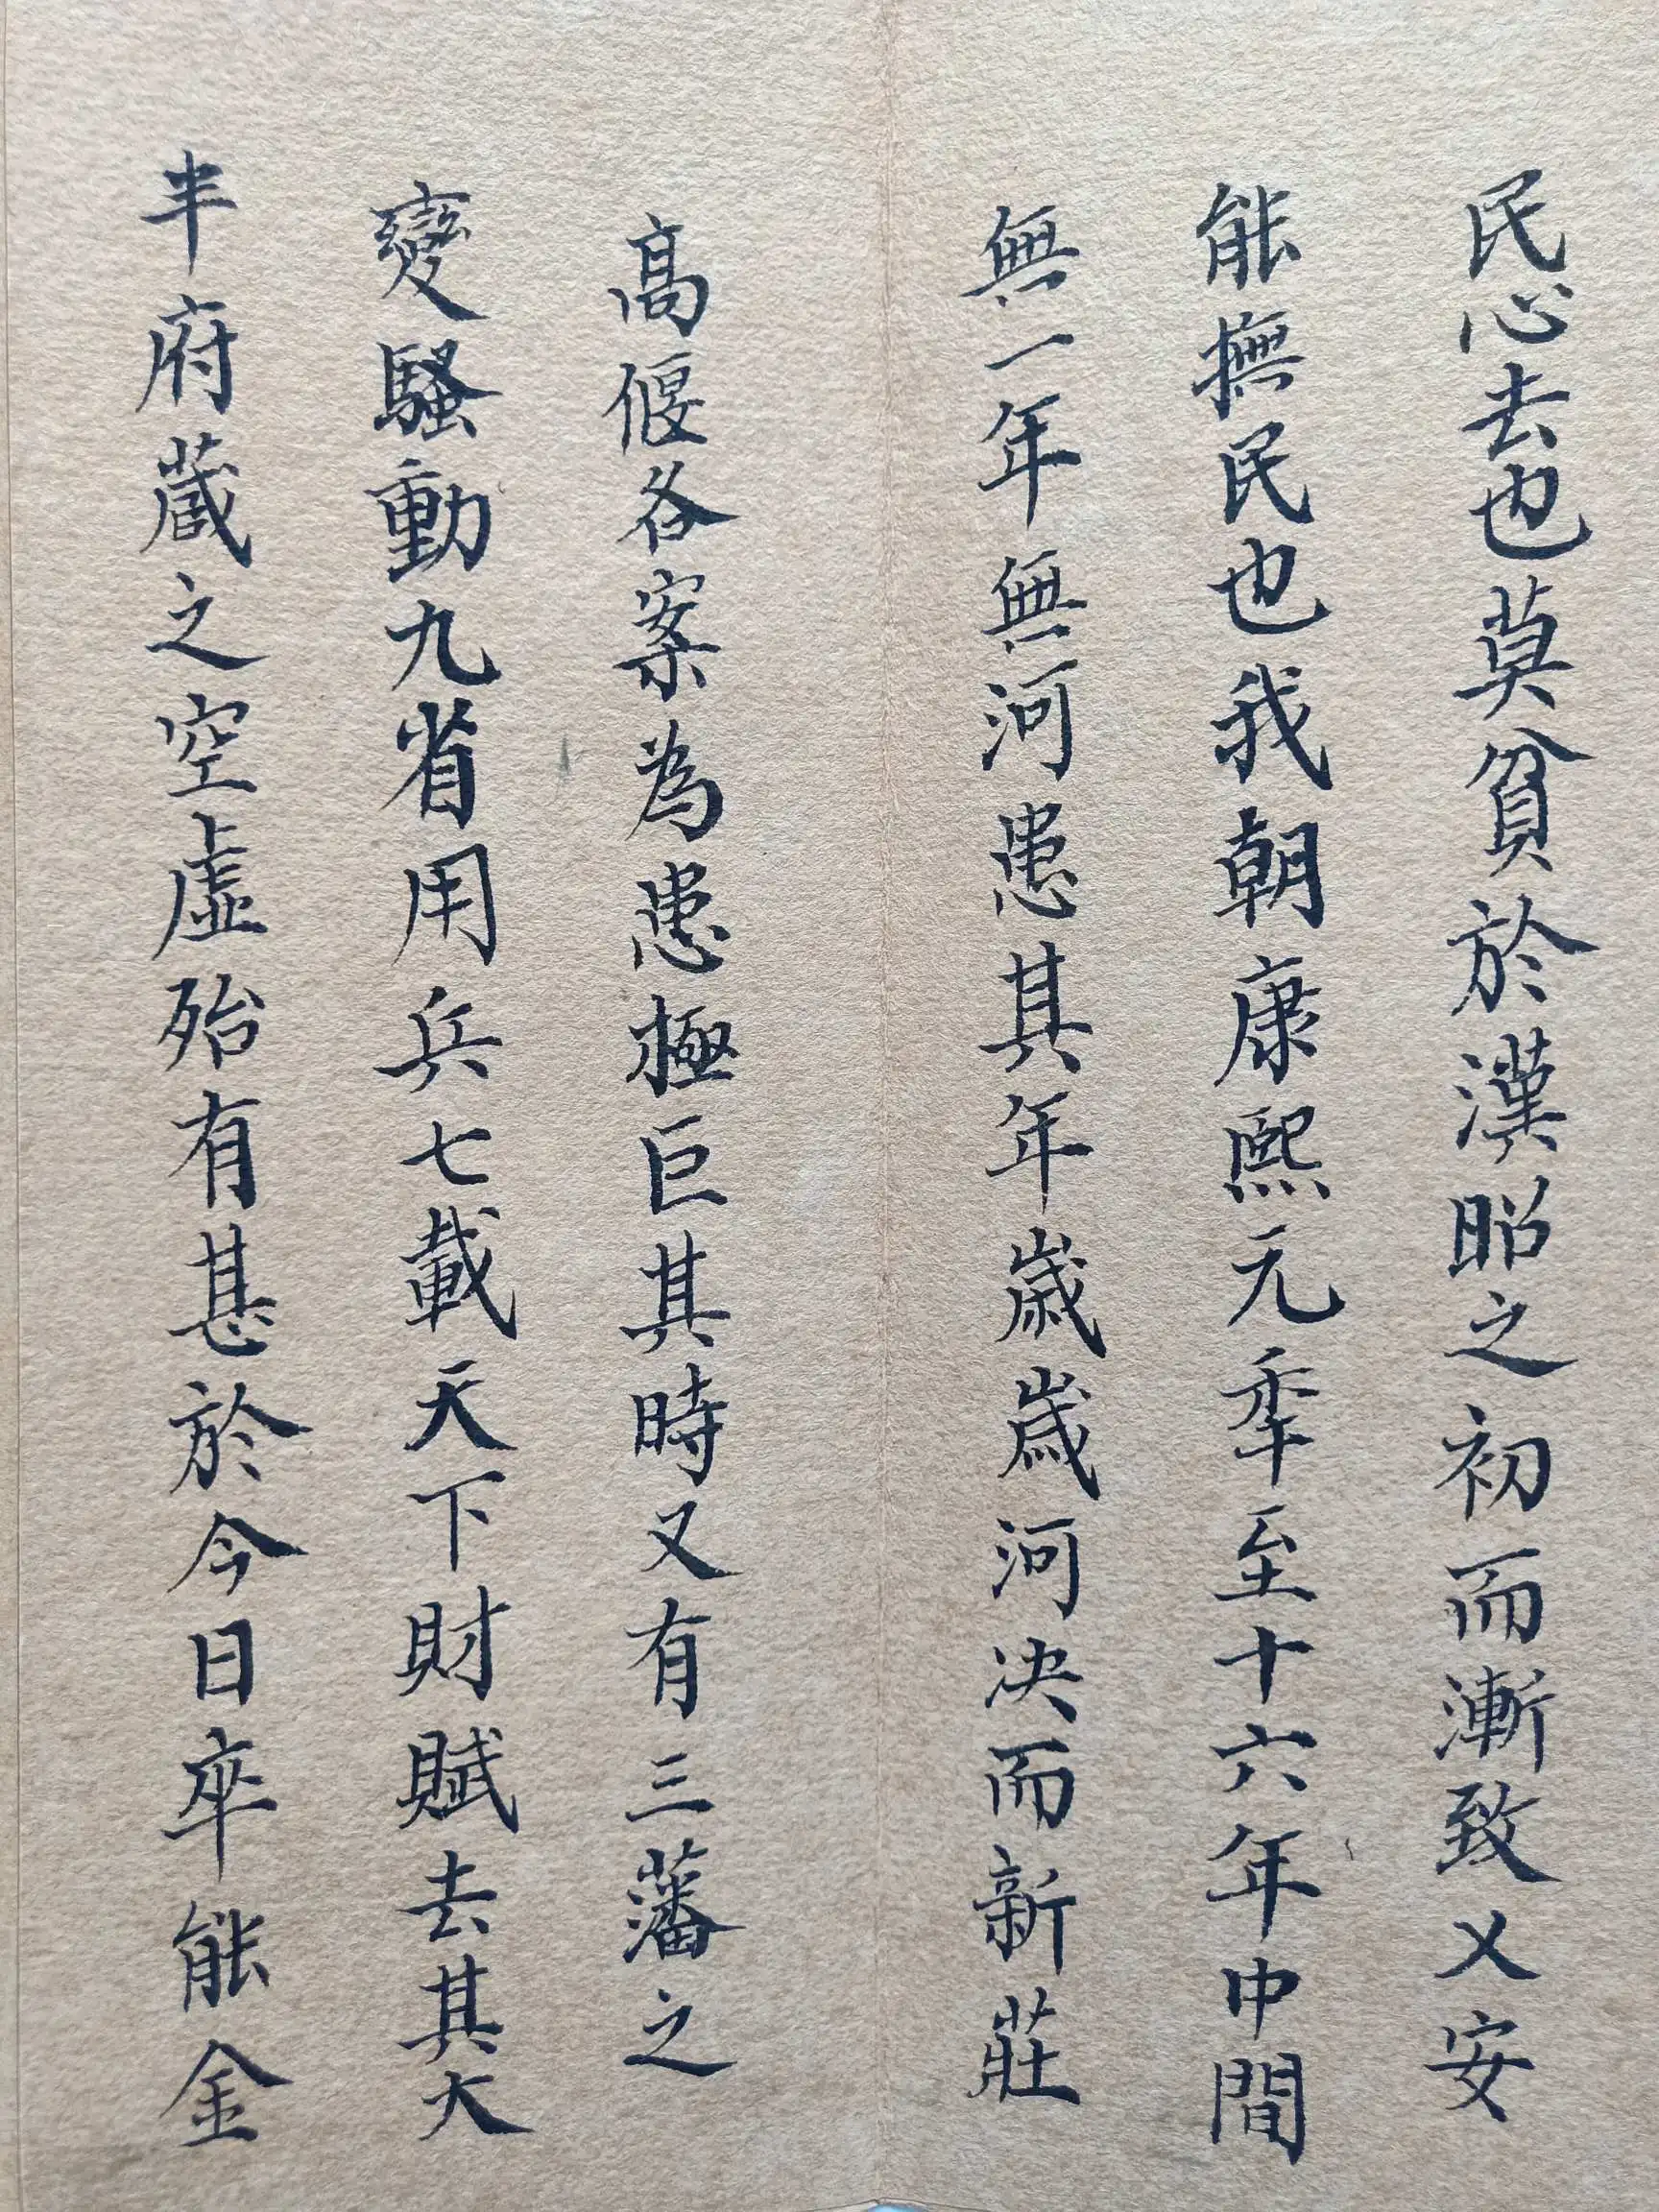 民心去也莫貧於漢昭之初而漸致乂安
能撫民也我朝康熙元秊至十六年中間
無一年無河患其年歲歲河決而新莊
高偃各案為患極巨其時又有三藩之
變騷動九省用兵七載天下財賦去其大
半府蔵之空虛殆有甚於今日卒能金